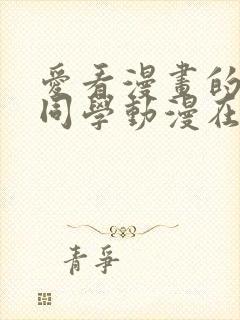 愛看漫畫的
同學動漫在
青爭